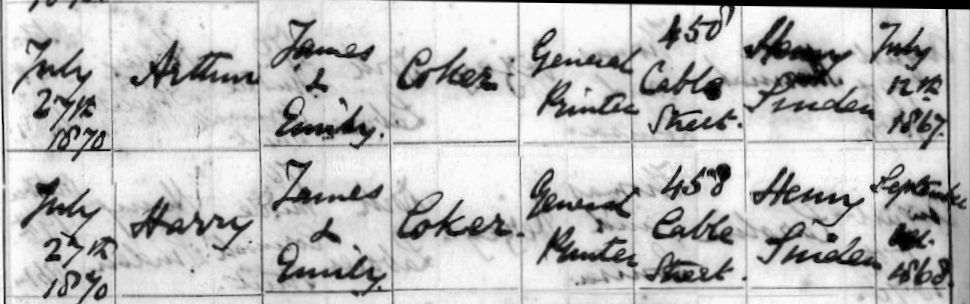 July 27th 1870 Arthur James & Emily. Coker. General Printer 458 Cable Street. Henry Sinden July 12th 1867.
July 27th 1870 Harry James & Emily Coker. General Printer 458 Cable Street. Henry Sinden September 1868.